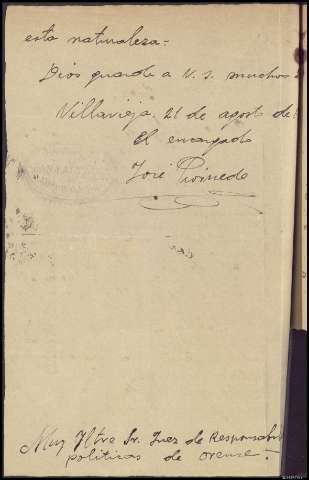 esta naturaleza=
Dios guarde a V. S. muchos
Villavieja, 21 de agosto de
El encargado
José
Muy Iltre Sr. Juez de Responsabi
políticas de Orense=